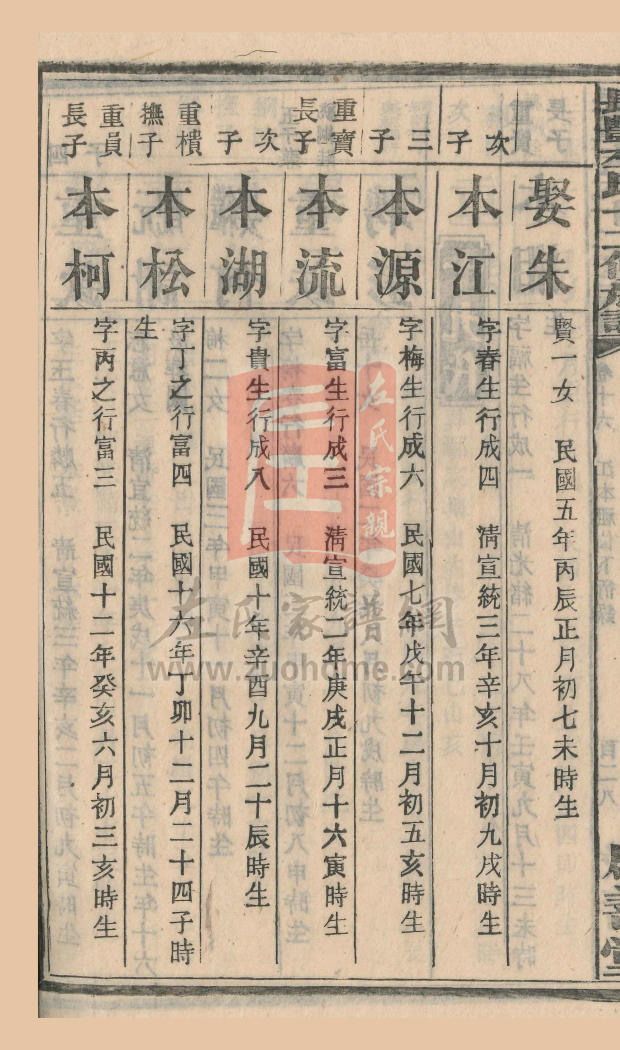 娶朱
賢一女 民國五年丙辰正月初七未時生
次子
本江
字春生行成四 清宣統三年辛亥十月初九戌時生
三子
本源
字梅生行成六 民國七年戊午十二月初五亥時生
重寶長子
本流
字富生行成三 清宣統二年庚戌正月十六寅時生
次子
本湖
字貴生行成八 民國十年辛酉九月二十辰時生
重櫝撫子
本松
字丁之行富四 民國十六年丁卯十二月二十四子時生
重員長子
本柯
字丙之行富三 民國十二年癸亥六月初三亥時生
左氏宗親
左氏家譜網
www.zuohome.com